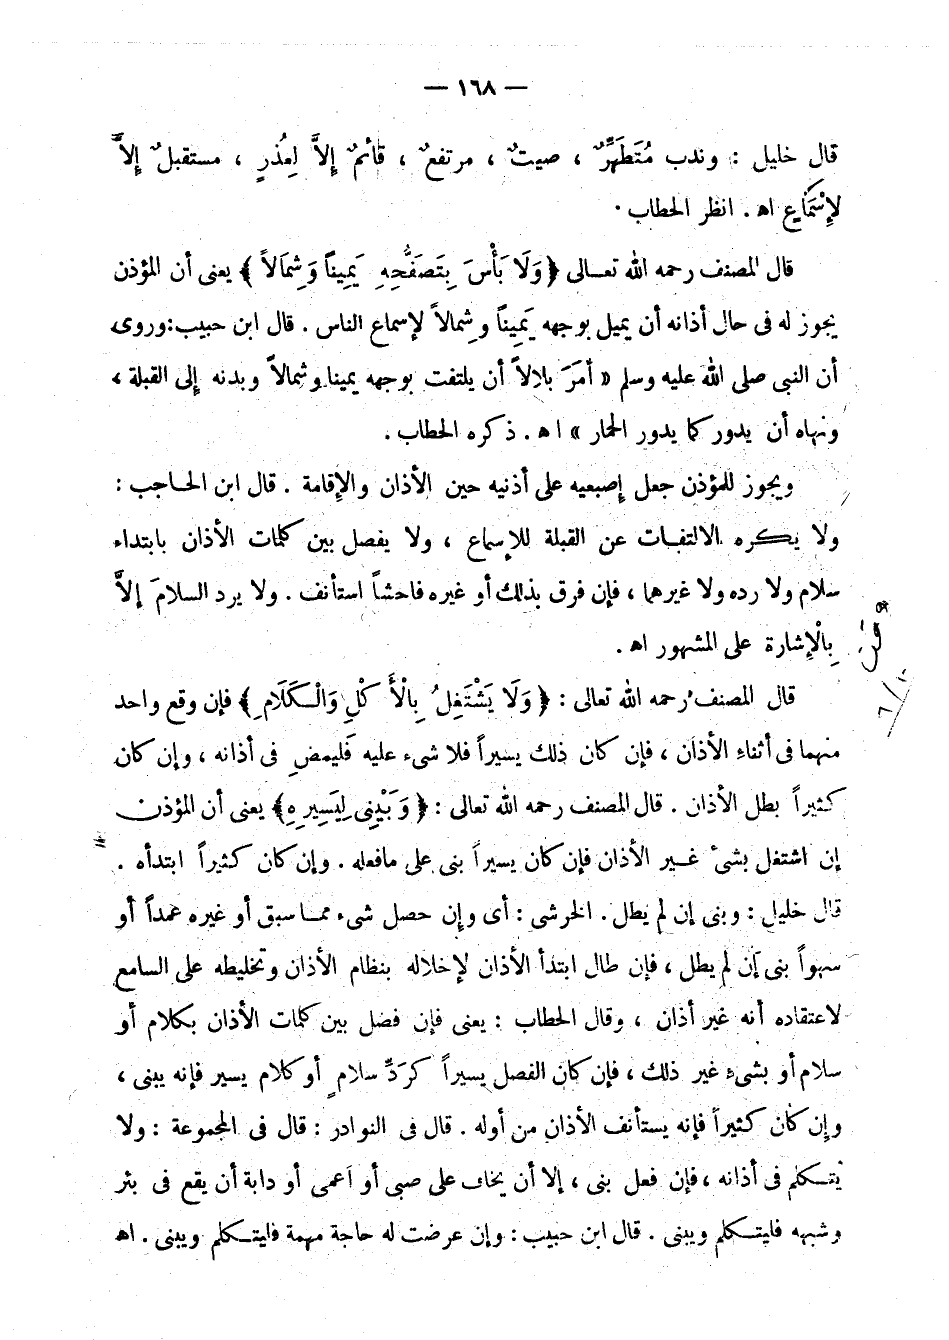 — ١٦٨ —
قال خليل : وندب مُتَطَهِّرٌ ، صيتٌ ، مرتفعٌ ، قائمٌ إلاَّ لِعُذرٍ ، مستقبلٌ إلاَّ
لإِسْمَاعٍ اهـ . انظر الحطاب .
قال المصنف رحمه الله تعالى ﴿ وَلَا بَأْسَ بِتَصَفُّحِهِ يَمِيناً وَشِمَالاً ﴾ يعنى أن المؤذن
يجوز له فى حال أذانه أن يميل بوجهه يَمِيناً وشِمالاً لإسماع الناس . قال ابن حبيب : وروى
أن النبى صلى الله عليه وسلم « أمَرَ بلالاً أن يلتفت بوجهه يمينا وشمالاً وبدنه إلى القبلة ،
ونهاه أن يدور كما يدور الحمار » اهـ . ذكره الحطاب .
ويجوز للمؤذن جعل إصبعيه على أذنيه حين الأذان والإقامة . قال ابن الحاجب :
ولا يكره الالتفات عن القبلة للإسماع ، ولا يفصل بين كلمات الأذان بابتداء
سلام ولا رده ولا غيرهما ، فإن فرق بذلك أو غيره فاحشاً استأنف . ولا يرد السلامَ إلاَّ
بِالْإشارة على المشهور اهـ .
قال المصنف رحمه الله تعالى : ﴿ وَلَا يَشْتَغِلُ بِالْأَكْلِ وَالْكَلَامِ ﴾ فإن وقع واحد
منهما فى أثناء الأذان ، فإن كان ذلك يسيراً فلا شىء عليه فليمضِ فى أذانه ، وإن كان
كثيراً بطل الأذان . قال المصنف رحمه الله تعالى : ﴿ وَيَبْنِى لِيَسِيرِهِ ﴾ يعنى أن المؤذن
إن اشتغل بشىء غير الأذان فإن كان يسيراً بنى على مافعله . وإن كان كثيراً ابتدأه .
قال خليل : وبنى إن لم يطل . الخرشى : أى وإن حصل شىء مما سبق أو غيره عمداً أو
سهواً بنى إن لم يطل ، فإن طال ابتدأ الأذان لإخلاله بنظام الأذان وتخليطه على السامع
لاعتقاده أنه غير أذان ، وقال الحطاب : يعنى فإن فصل بين كلمات الأذان بكلام أو
سلام أو بشىء غير ذلك ، فإن كان الفصل يسيراً كردِّ سلامٍ أو كلام يسير فإنه يبنى ،
وإن كان كثيراً فإنه يستأنف الأذان من أوله . قال فى النوادر : قال فى المجموعة : ولا
يتكلم فى أذانه ، فإن فعل بنى ، إلا أن يخاف على صبى أو أعمى أو دابة أن يقع فى بئر
وشبهه فليتكلم ويبنى . قال ابن حبيب : وإن عرضت له حاجة مهمة فليتكلم ويبنى . اهـ